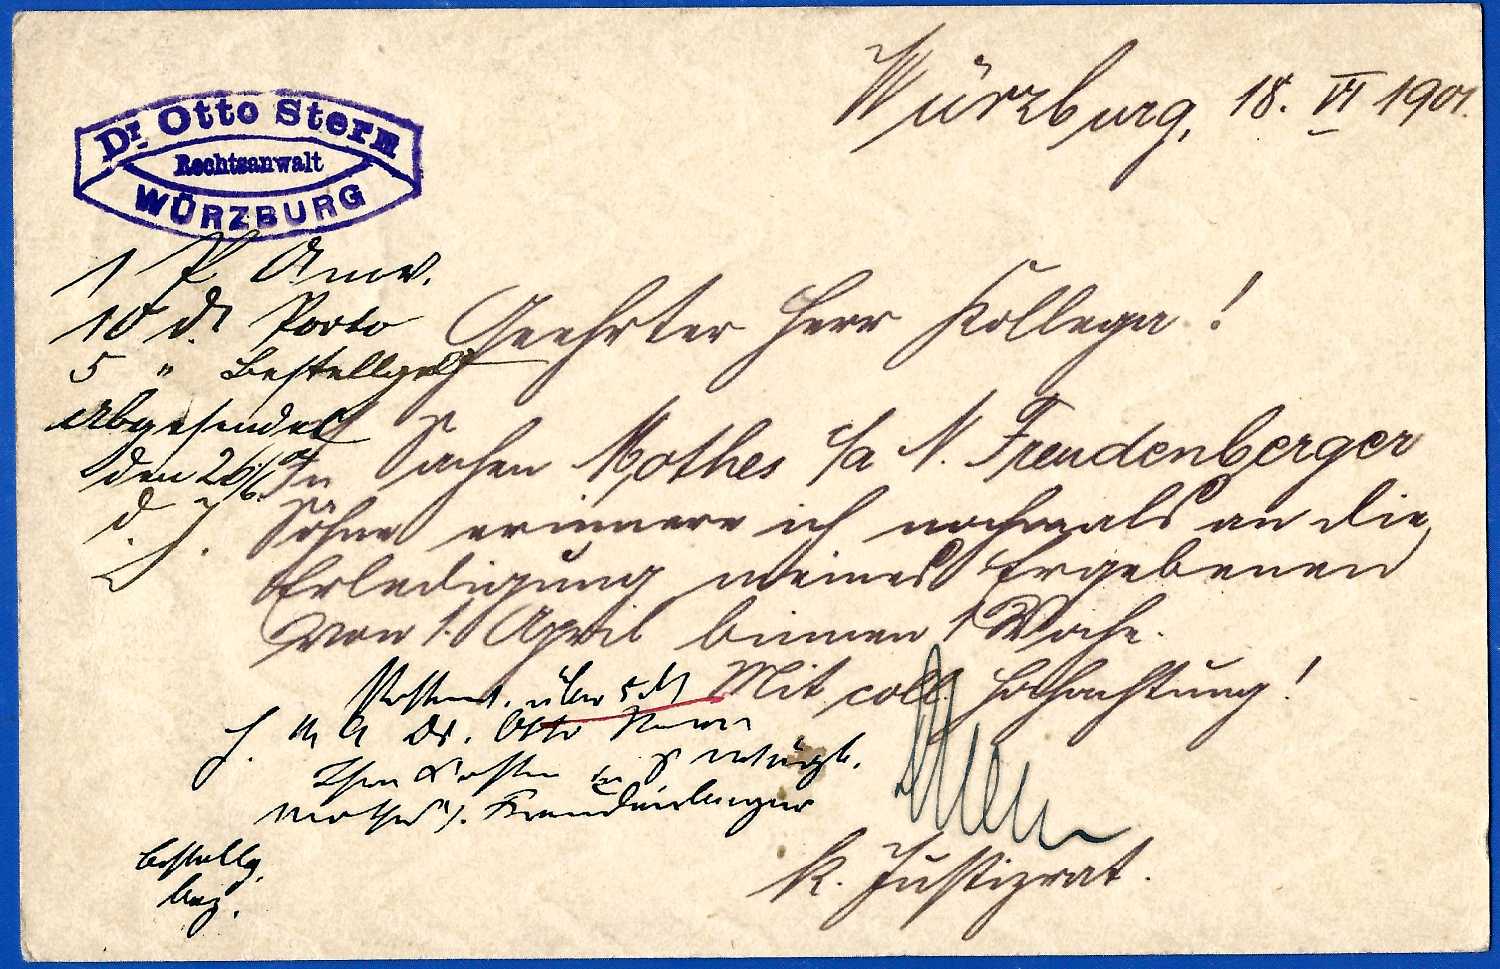 Würzburg, 18. VI 1901.
Dr. Otto Stern
Rechtsanwalt
WÜRZBURG
1 P. Anw.
10 dl. Porto
5 " Bestellgeld
Abgesendet
den 26/6.
d. J.
Geehrter Herr Kollega!
In Sachen Mothes c/a N. Freudenberger
Söhne erinnere ich nochmals an die
Erledigung meines Ergebenen
von 1. April binnen 1 Woche.
Mit coll. Hochachtung!
über 5 M
Dr. Otto Stern
Ihre Kosten in
Mothes ./. Freudenberger
Bestellg.
k. Justizrat.